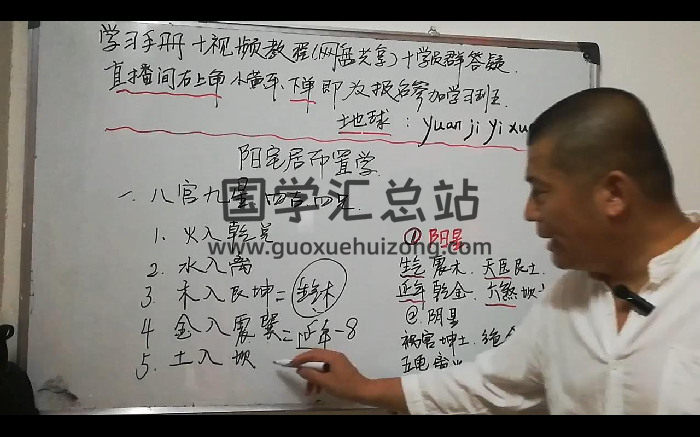 学习手册+视频教程(网盘共享)+学员群答疑.
直播间右上角小黄车,下单即为报名参加学习班
地球:yuanjiyixu
阳宅居布置学.
一.八宫九星
国学汇总站
www.guoxuehuizong.com
1.火入乾兑
2.水入离
3.木入艮坤=
4.金入震巽=延年-8
5.土入坎
①阳星
生气震木.天医艮土.
延年乾金.六煞坎
②阴星
祸害坤土.绝
五鬼